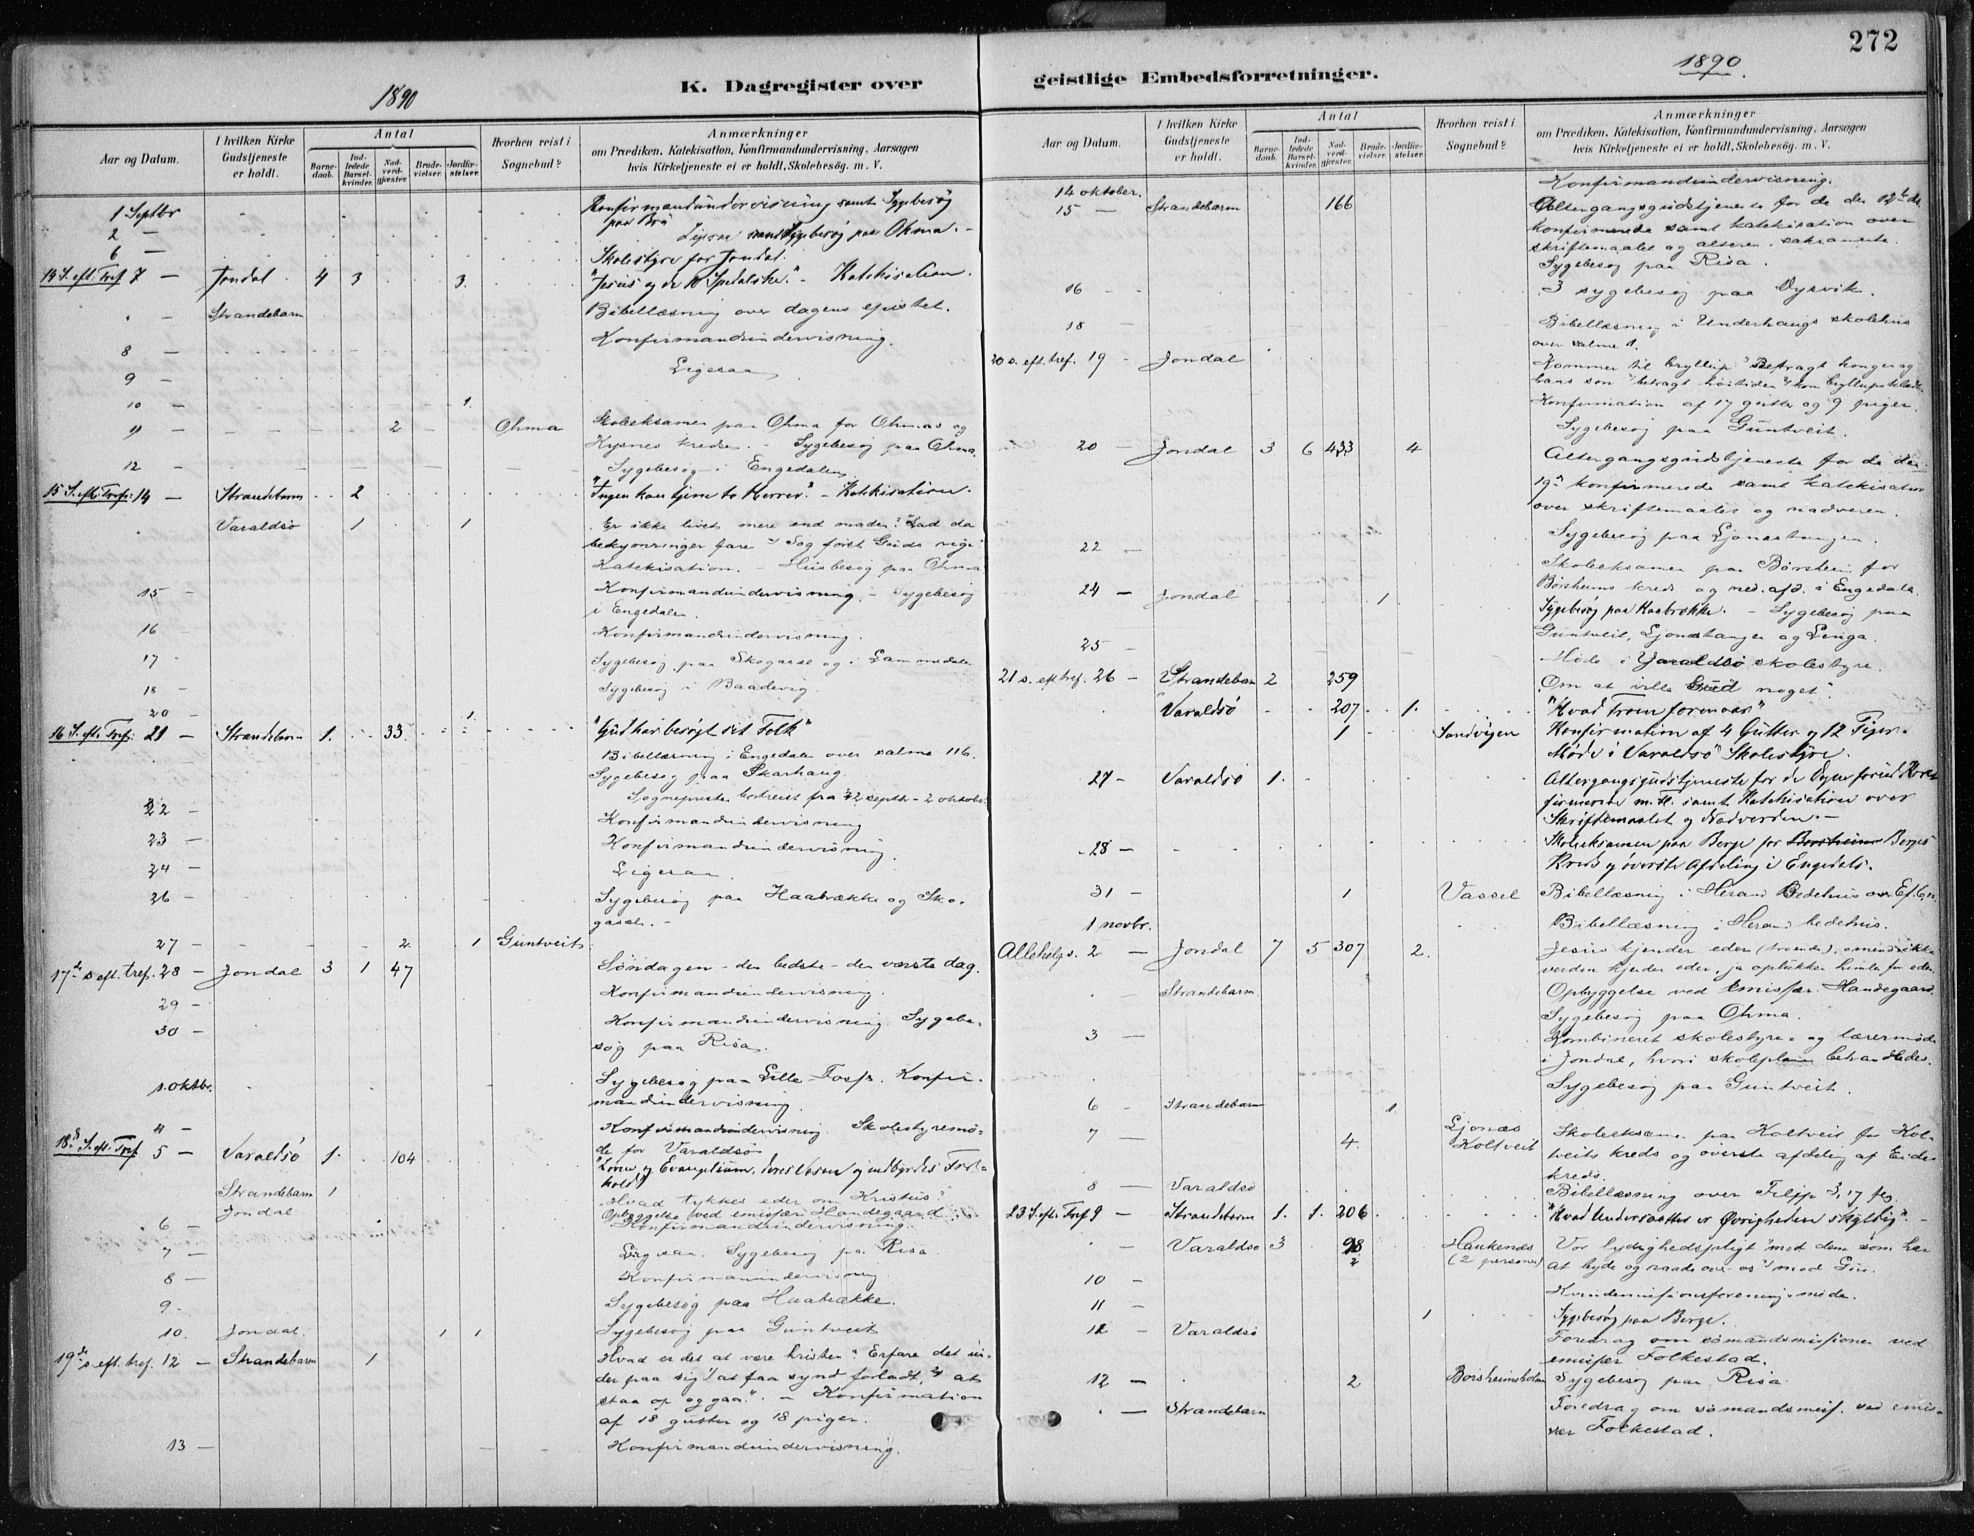 272
1890
K. Dagregister over
geistlige Embedsforretninger.
1890.
Aar og Datum.
I hvilken Kirke Gudstjeneste er holdt.
Antal
Barne-daab.
Ind-ledede Barsel-kvinder.
Nad-verd-gjæster.
Brude-vielser.
Jordfæ-stelser.
Hvorhen reist i Sognebud?
Anmærkninger
om Prædiken, Katekisation, Konfirmandundervisning, Aarsagen
hvis Kirketjeneste ei er holdt, Skolebesøg. m. V.
1 Septbr Konfirmandundervisning samt Sygebesøg
paa Brö
2 — Ligesaa samt Sygebesøg paa Ohma. -
6 — Skolestyre for Jondal.
14 S. eft. Tref 7 — Jondal. 4 3 3. "Jesus og de 10 Spedalske." - Katekisation.
" — Strandebarm Bibellæsning over dagens epistel.
8 — Konfirmandundervisning.
9 — Ligesaa
10 — 1.
11 — 2 — Ohma Skoleeksamen paa Ohma for Ohmas og
Kysnes kredse. - Sygebesøg paa Ohma.
12 — Sygebesøg i Engedalen
15 S. eft. Tref: 14 — Strandebarm 2 "Ingen kan tjene to Herrer." - Katekisation.
Varaldsö 1 1 Er ikke livet mere end maden? Lad da
bekymringer fare Søg først Guds rige
Katekisation. - Husbesøg paa Ohma
15 — Konfirmandundervisning. - Sygebesøg
i Engedalen
16 — Konfirmandundervisning.
17 — Sygebesøg paa Skogasel og i Lammedalen
18 — Sygebesøg i Baadevig.
20 — 1.
16 S. eft. Tref: 21 — Strandebarm 1. 33 "Gud har besøgt sit Folk"
Bibellæsning i Engedal over salme 116.
Sygebesøg paa Skarhaug.
Sognepresten bortreist fra 22 septbr - 2 oktober.
22 — Konfirmandundervisning
23 — Konfirmandundervisning.
24 — Ligesaa.
26 — Sygebesøg paa Haabrække og Sko-
gasel. -
27 — 2 1 Guntveit
17de s eft. tref. 28 — Jondal 3 1 47 Söndagen - den bedste - den værste dag.
29 — Konfirmandundervisning.
30 — Konfirmandundervisning. Sygebe-
søg paa Risa.
1. oktbr. Sygebesøg paa Lille Foss. Konfir-
mandundervisning.
4 — Konfirmandundervisning. Skolestyremö-
de for Varaldsö
18 S. eft. Tref 5 — Varaldsö 1. 104 "Loven og Evangelium, deres Væsen og indbyrdes Forhold"
Strandebarm 1 Hvad tykkes eder om Kristus?
Jondal Opbyggelse ved emissær Handegaard
6 — Konfirmandundervisning.
7 — Ligesaa. Sygebesøg paa Risa
8 — Konfirmandundervisning
9 — Sygebesøg paa Haabrække.
10. Jondal 1 1 Sygebesøg paa Guntveit
19de s eft. tref. 12 — Strandebarm 1 Hvad er det at være kristen? Erfare det un-
der paa sig at faa synd forladt, at
staa op og gaa". - Konfirmation
af 18 gutter og 18 piger.
13 — Konfirmandundervisning.
Aar og Datum.
I hvilken Kirke Gudstjeneste er holdt.
Antal
Barne-daab.
Ind-ledede Barsel-kvinder.
Nad-verd-gjæster.
Brude-vielser.
Jordfæ-stelser.
Hvorhen reist i Sognebud?
Anmærkninger
om Prædiken, Katekisation, Konfirmandundervisning, Aarsagen
hvis Kirketjeneste ei er holdt, Skolebesøg. m. V.
14 oktober. Konfirmandundervisning.
15 — Strandebarm 166 Altergangsgudstjeneste for de den 12te
konfirmerede samt katekisation over
skriftemaalet og alterens sakramente.
Sygebesøg paa Risa.
16 — 3 sygebesøg paa Oysvik.
18 — Bibellæsning i Underhaugs skolehus
over salme 1.
20 s. eft. tref. 19 — Jondal Kommer til bryllup! Betragt kongen og
hans søn betragt høitiden kom bryllupsklædt
Konfirmation af 17 gutter og 9 piger.
Sygebesøg paa Guntveit.
20 — Jondal 3 6 433 4 Altergangsgudstjeneste for de den
19de konfirmerede samt katekisation
over skriftemaalet og nadveren.
22 — Sygebesøg paa Ljonestangen.
24 — Jondal 1 Skoleeksamen paa Børsheim for
Børsheims kreds og ned. afd. i Engedals.
Sygebesøg paa Haabrække. - Sygebesøg paa
25 — Guntveit, Ljonestangen og Linga.
Møde i Varaldsö skolestyre.
21 s. eft tref. 26 — Strandebarm 2 259 "Om at ville Gud noget".
Varaldsö 207 1. "Hvad Troen formaar"
1 Sandvigen Konfirmation af 4 Gutter og 12 Piger.
Møde i Varaldsö Skolestyre.
27 — Varaldsö 1. Altergangsgudstjeneste for de Dagen forud Kon-
firmerede m. fl. samt Katekisation over
Skriftemaalet og Nadverden. -
28 — Skoleeksamen paa Berge for Borsheim Berges
Kreds og øverste Afdeling i Engedals.
31 — 1 Vassel Bibellæsning i Herand Bedehus over Ef. 6,
1 novbr. Bibellæsning i Herand bedehus.
Allehelgs. 2 — Jondal 7 5 307 2. Jesus kjender eder
verden kjender eder, ja oplukker himlen for eder.
" — Strandebarm Opbyggelse ved Emissær Handegaard.
Sygebesøg paa Ohma.
3 — Kombineret skolestyre- og lærermöde
i Jondal, hvori skoleplanen behandledes.
Sygebesøg paa Guntveit.
6 — Strandebarm 1.
7 — 4. Ljonæs
Koltveit Skoleeksamen paa Koltveit for Kol-
tveits kreds og øverste afdeling af Eides
kreds.
8 — Varaldsö Bibellæsning over Filipp 3, 17 flg.
23 S. eft. Tref 9 — Strandebarm 1. 1. 206 "Hvad Undersaatten er Øvrigheden skyldig". -
" — Varaldsö 3 98
2 Haukenæs
(2 personer) Vor lydighedspligt mod dem som har
at byde og raade over os mod Gud.
10 — Kvindemissionsforenings möde.
11 — 1 Sygebesøg paa Berge.
12 — Varaldsö Foredrag om sömandsmissionen ved
emissær Folkestad.
12 — 2 Borsheimsholm Sygebesøg paa Risa
" — Strandebarm Foredrag om sömandsmiss. ved emis-
sær Folkestad.